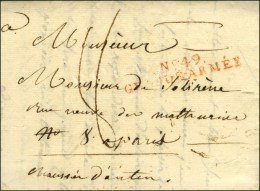 a
Monsieur
No. 49
GDE ARMÉE
Monsieur de
rue neuve des mathurins
No 8. a paris
chaussée d'antin.